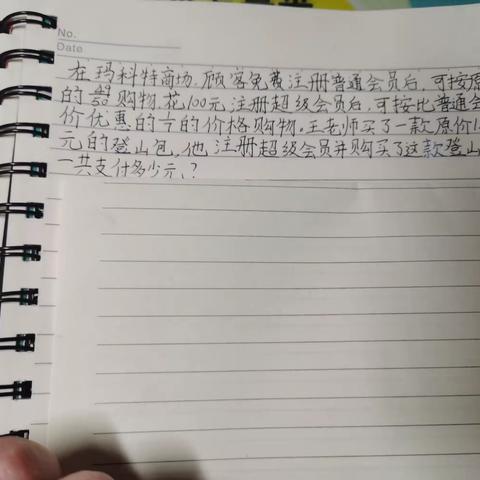 No.
Date
在玛科特商场,顾客免费注册普通会员后,可按原
的49/50购物.花100元注册超级会员后,可按比普通会
价优惠的 的价格购物。王老师买了一款原价1
元的登山包,他注册超级会员并购买了这款登山
一共支付多少元、?